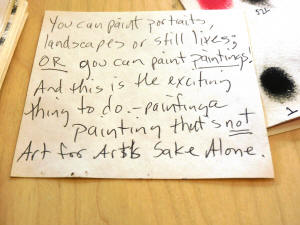 You can paint portraits,
landscapes or still lives;
OR you can paint paintings!
And this is the exciting
thing to do – painting a
painting that's not
Art for Art's Sake Alone.